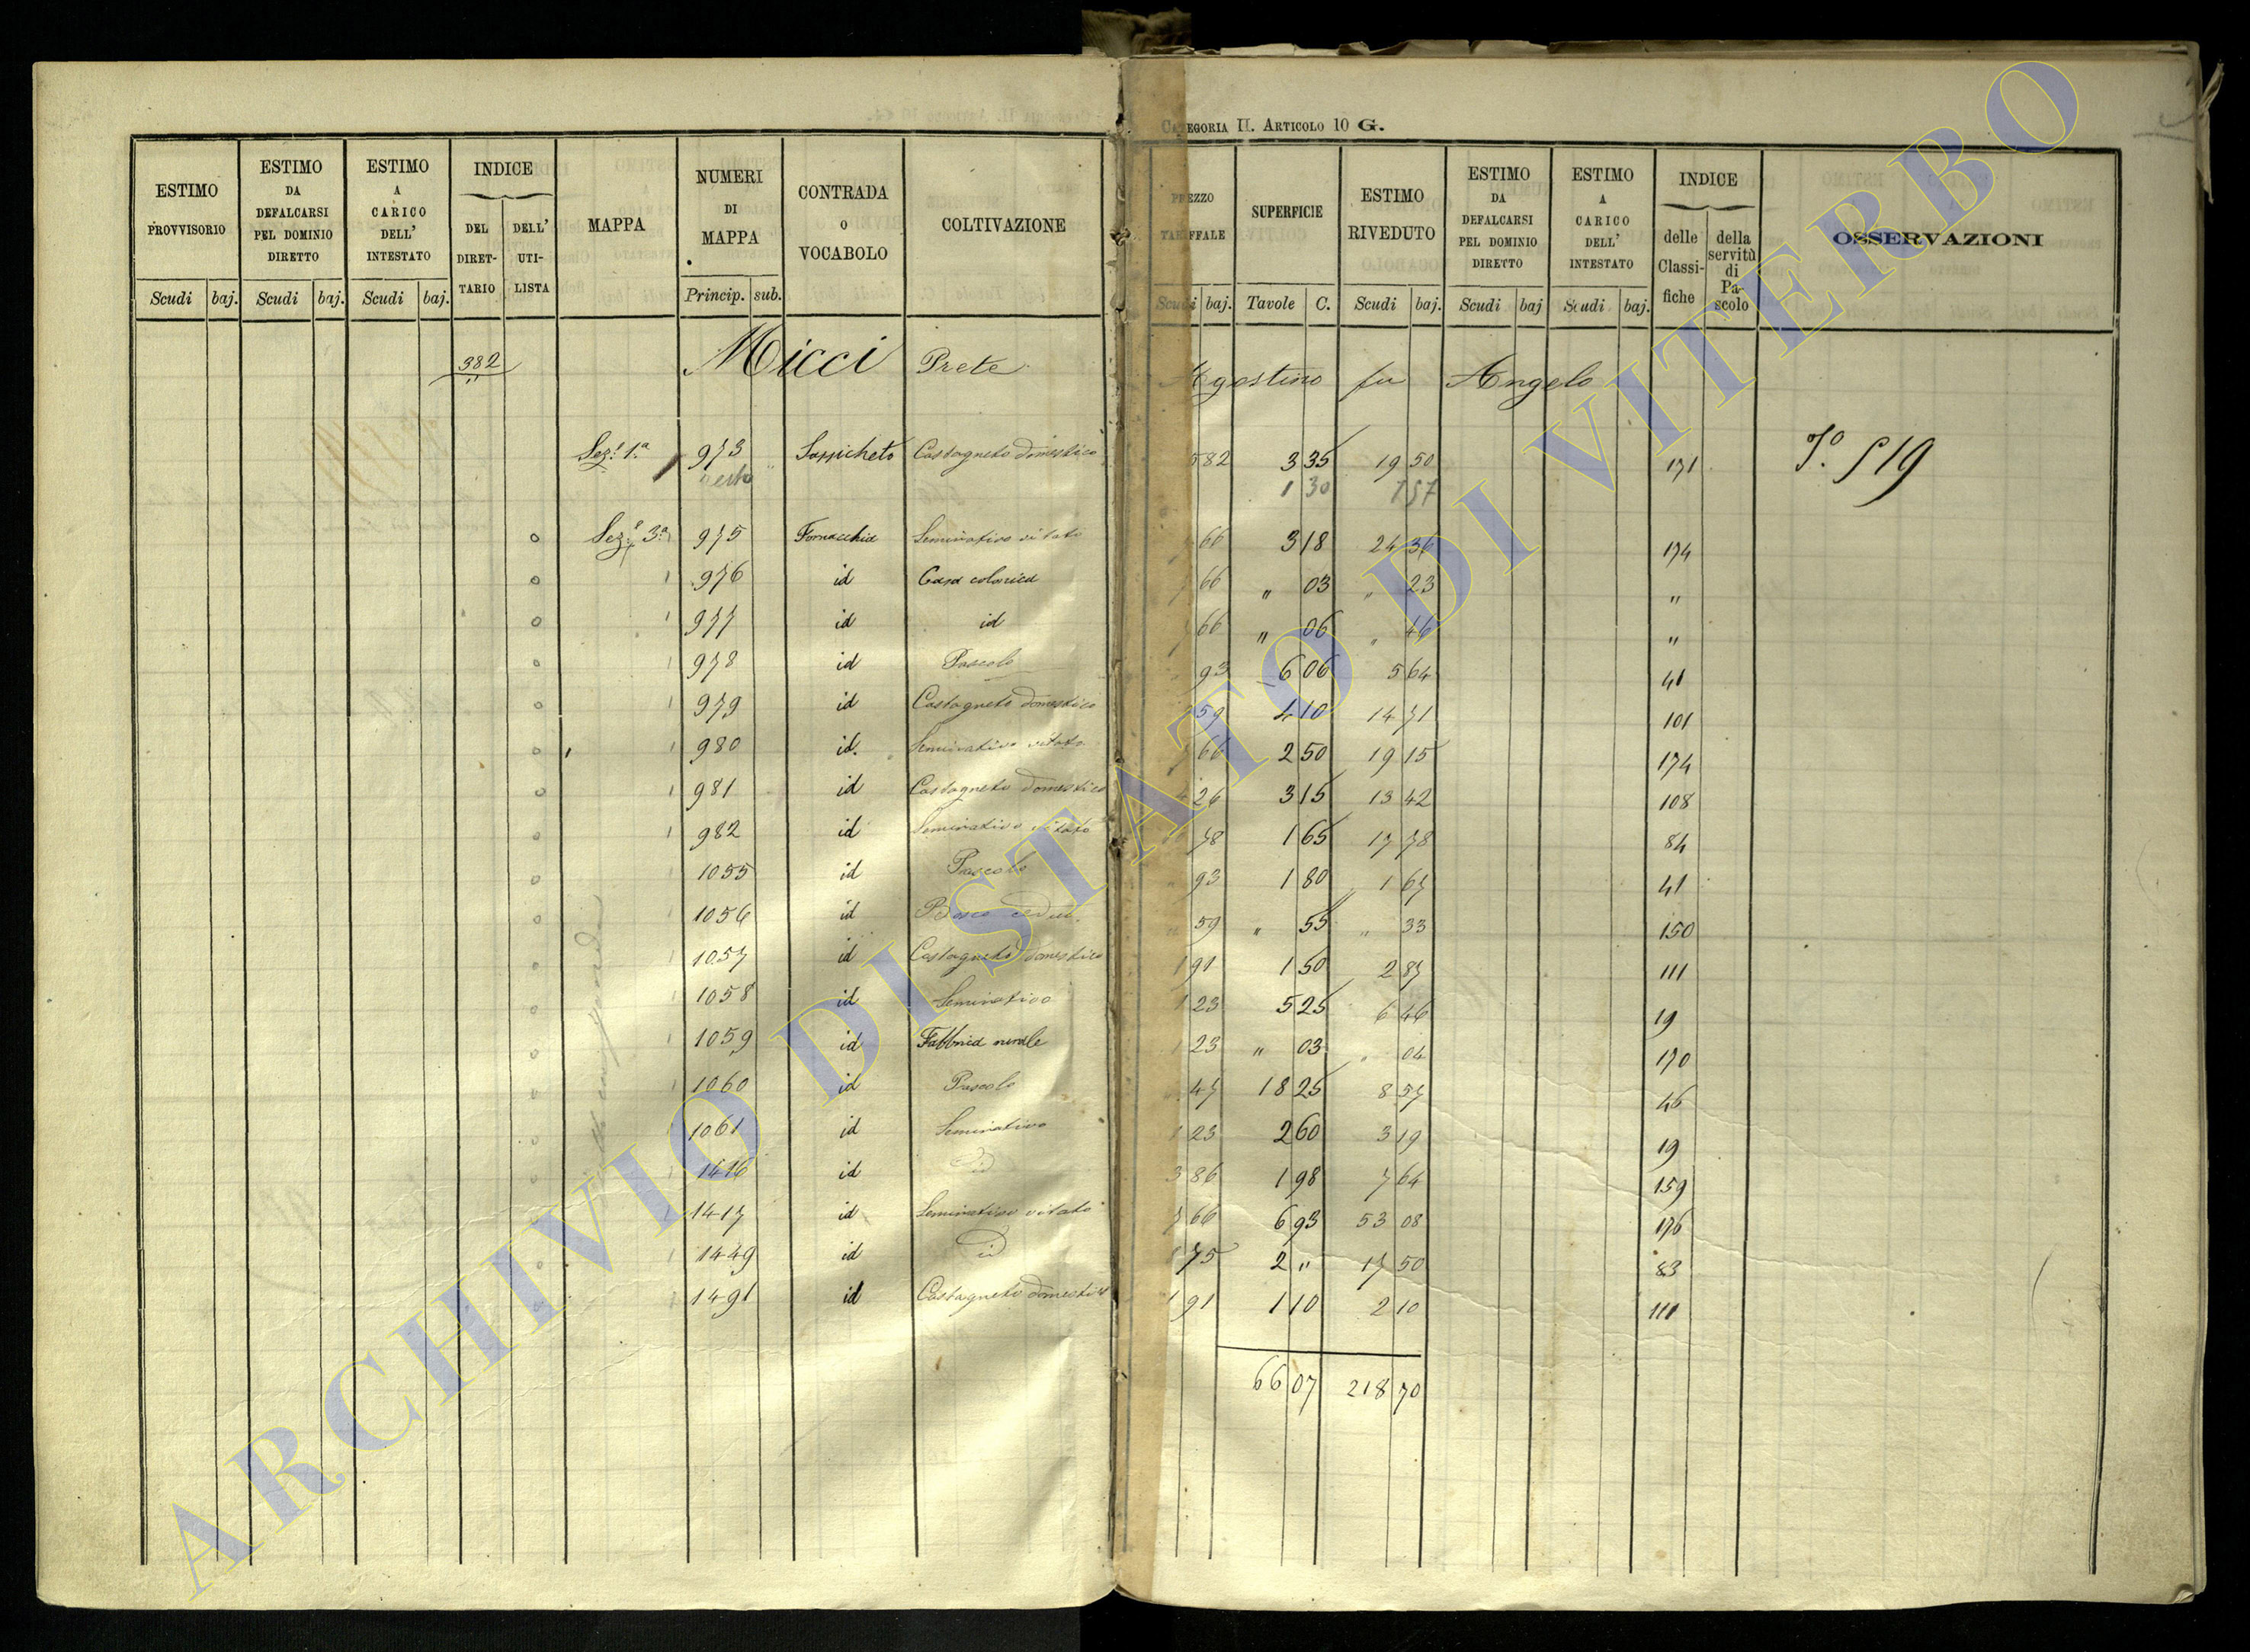 CATEGORIA II. ARTICOLO 10 G.
ESTIMO PROVVISORIO | ESTIMO DA DEFALCARSI PEL DOMINIO DIRETTO | ESTIMO A CARICO DELL' INTESTATO | INDICE DEL DIRETTARIO | DELL' UTILISTA | MAPPA | NUMERI DI MAPPA | CONTRADA o VOCABOLO | COLTIVAZIONE | PREZZO TARIFFALE | SUPERFICIE | ESTIMO RIVEDUTO | ESTIMO DA DEFALCARSI PEL DOMINIO DIRETTO | ESTIMO A CARICO DELL' INTESTATO | INDICE delle Classifiche | della servitù di Pascolo | OSSERVAZIONI
Scudi | baj. | Scudi | baj. | Scudi | baj. | Princip. | sub. | Scudi | baj. | Tavole | C. | Scudi | baj. | Scudi | baj | Scudi | baj.
382 Micci Prete Agostino fu Angelo
Sez.e 1.a 973 Sassicheto Castagneto domestico 5 82 3 35 19 50 171 519
resto 1 30 7 57
Sez.e 3.a 975 Fornacchia Seminativo vitato 66 3 18 24 36 174
976 id Casa colonica 66 " 03 " 23 "
977 id id 66 " 06 " 46 "
978 id Pascolo 93 6 06 5 64 41
979 id Castagneto domestico 59 4 10 14 71 101
980 id. Seminativo vitato 66 2 50 19 15 174
981 id Castagneto domestico 4 26 3 15 13 42 108
982 id Seminativo vitato 78 1 65 17 78 84
1055 id Pascolo 93 1 80 1 67 41
1056 id Bosco ceduo 59 " 55 " 33 150
1057 id Castagneto domestico 1 91 1 50 2 87 111
1058 id Seminativo 1 23 5 25 6 46 19
1059 id Fabbrica rurale 1 23 " 03 " 04 170
1060 id Pascolo 47 18 25 8 57 46
1061 id Seminativo 1 23 2 60 3 19 19
1416 id id 3 86 1 98 7 64 159
1417 id Seminativo vitato 7 66 6 93 53 08 176
1449 id id 75 2 " 17 50 83
1491 id Castagneto domestico 1 91 1 10 2 10 111
66 07 218 70
ARCHIVIO DI STATO DI VITERBO